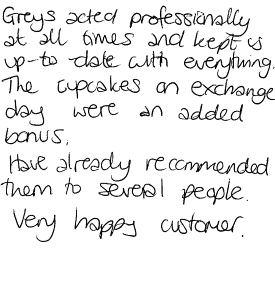 Greys acted professionally
at all times and kept us
up-to-date with everything.
The cupcakes on exchange
day were an added
bonus.
Have already recommended
them to several people.
Very happy customer.